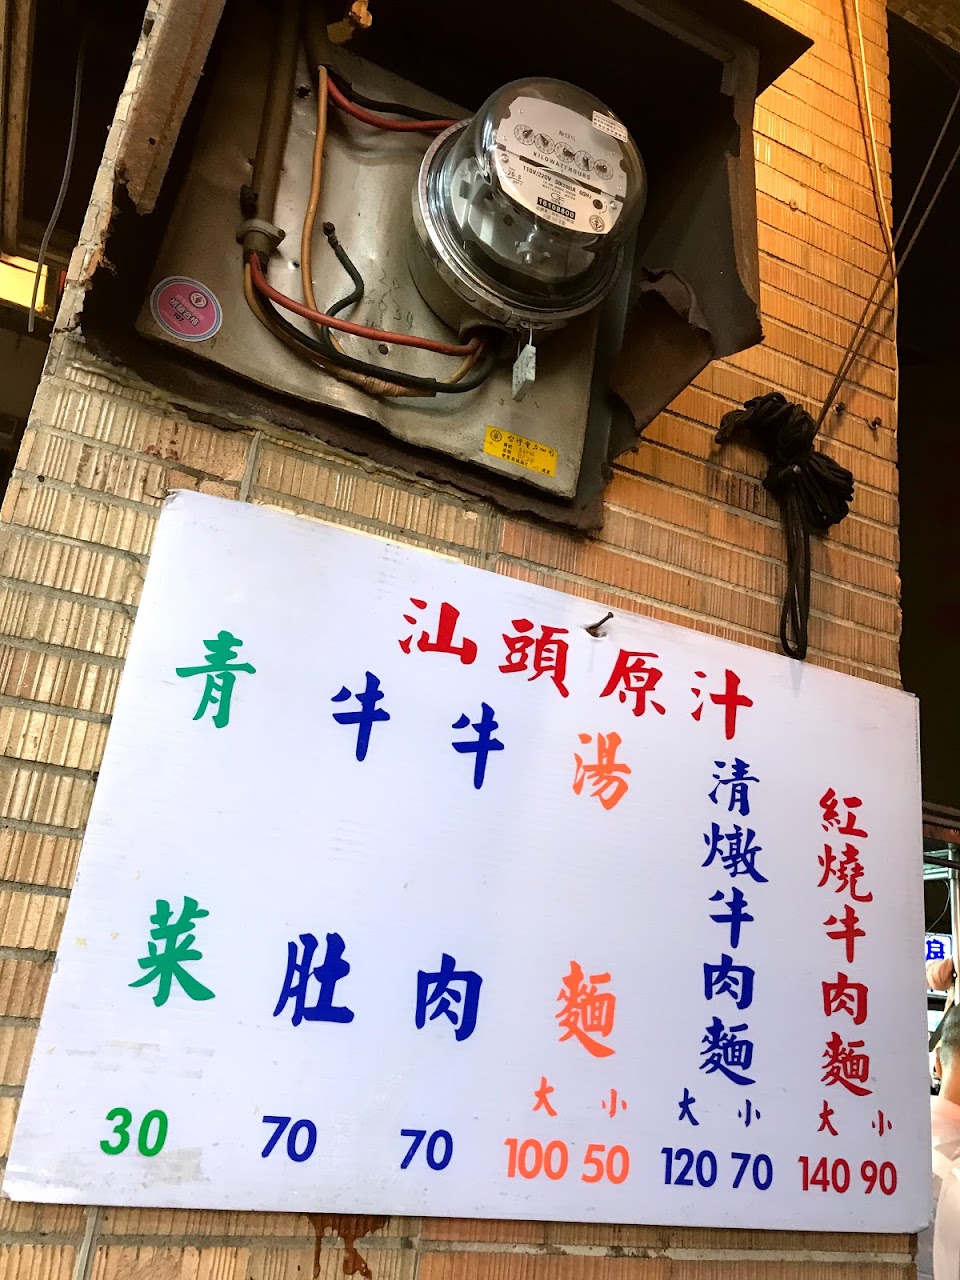 KILOWATTHOURS
110V/220V 30(200)A 60Hz
汕頭原汁
紅燒牛肉麵
大 小
140 90
清燉牛肉麵
大 小
120 70
湯麵
大 小
100 50
牛肉
70
牛肚
70
青菜
30